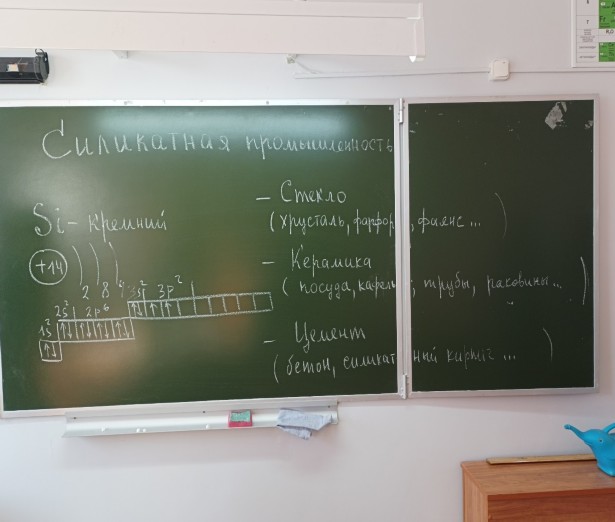 Силикатная промышленность
Si - кремний
+14
2 8 4
1s² 2s² 2p⁶ 3s² 3p²
- Стекло
(хрусталь, фарфор, фаянс ...)
- Керамика
(посуда, кафель, трубы, раковины ...)
- Цемент
(бетон, силикатный кирпич ...)